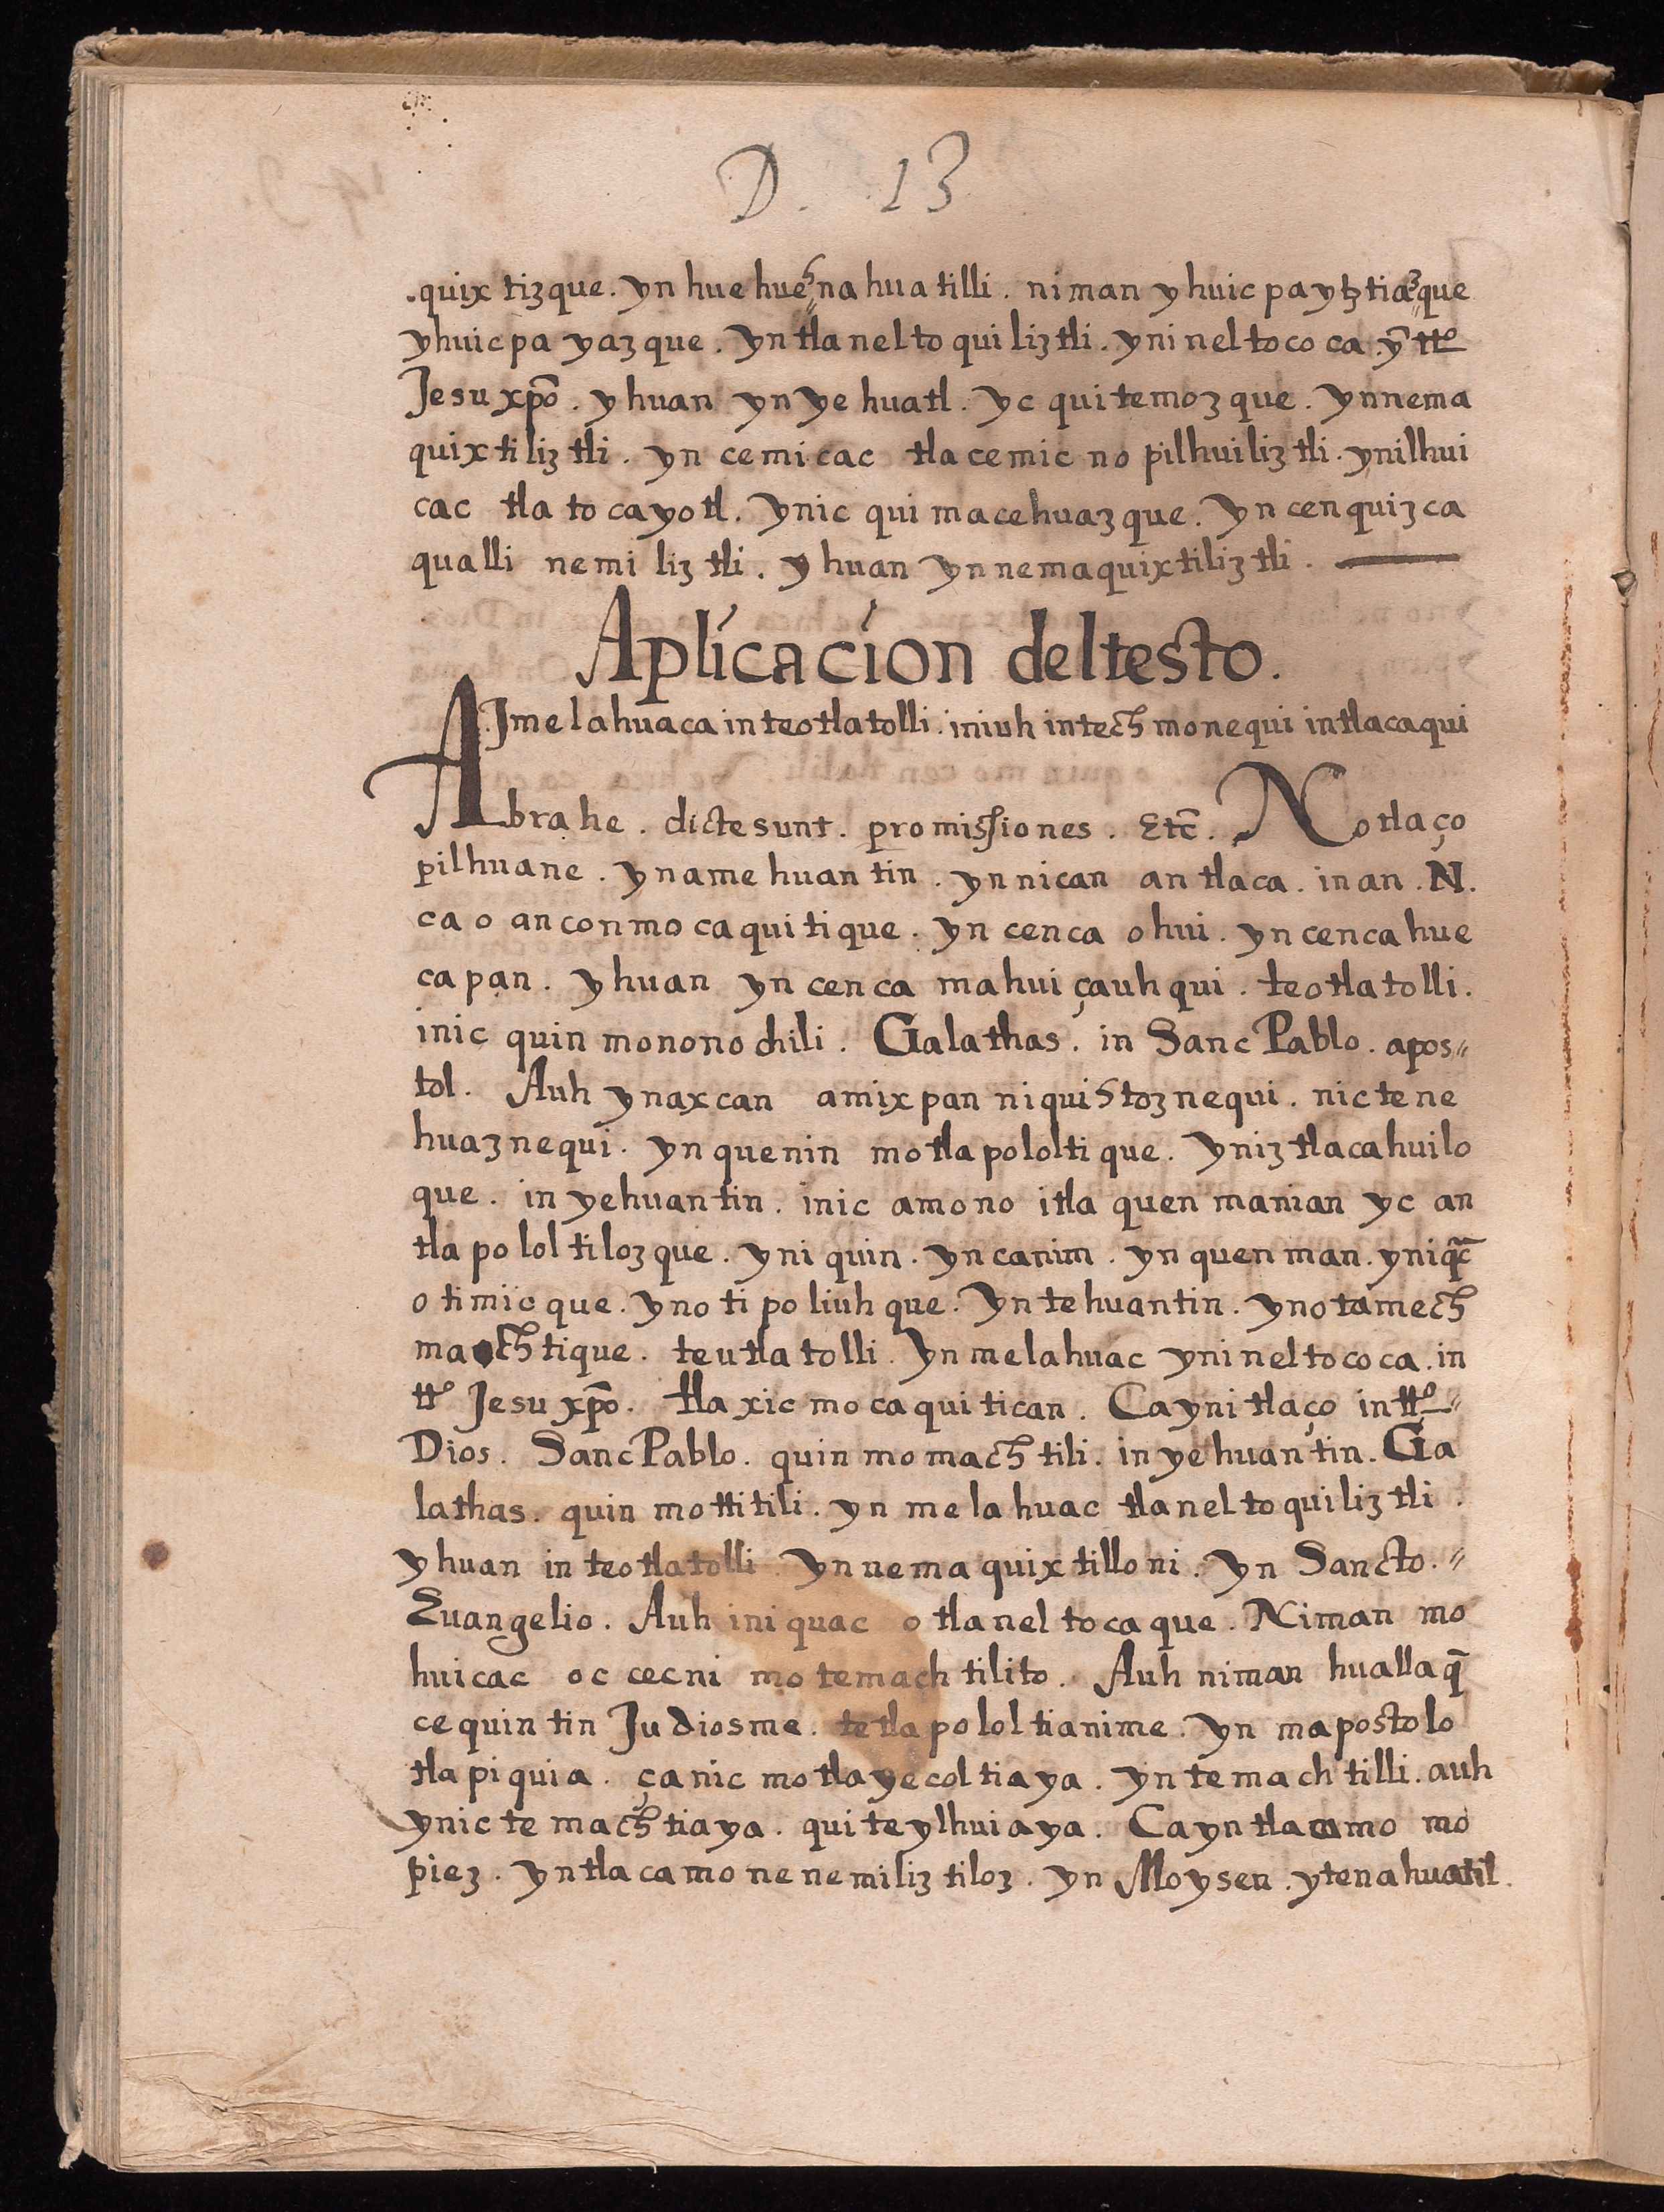 D. 13
.quix tizque. yn hue hueʒ na hua tilli. niman yhuic pa ytz tiazque
yhuic pa yazque. yn tla nel to qui liz tli. yni nel to co ca. yn̄ tto
Jesu xp̄o. yhuan yn ye huatl. yc qui temoz que. yn nema
quix ti liz tli. yn cemi cac tla cemic no pilhui liz tli. yn ilhui
cac tla to cayotl. ynic qui macehuaz que. yn cen quiz ca
qualli nemi liz tli. yhuan yn nemaquixtiliz tli.
Aplicacion del testo.
Jmelahuaca in teotlatolli. iniuh intech monequi in tlacaqui
Abrahe. dicte sunt. promissiones. Etc̄. No tlaço
pilhuane. yn ame huan tin. yn nican an tlaca. in an. N.
ca o anconmo ca qui ti que. yn cenca ohui. yn cenca hue
capan. yhuan yn cenca mahui çauh qui. teotla tolli.
inic quin monono chili. Galathas. in Sanc Pablo. apos„
tol. Auh yn axcan amix pan ni quistoz nequi. nic te ne
huaz nequi. yn quenin motla pololti que. yn iz tlacahuilo
que. in yehuantin. inic amono itla quen manian yc an
tla po lol ti loz que. yni quin. yn canim. yn quen man. yniqc̄
o ti mic que. yn o ti po liuh que. yn te huan tin. yn o tamech
mach tique. teutla tolli. yn melahuac yni nel to co ca. in
tto Jesu xp̄o. tla xic mo ca qui tican. Ca yni tlaço in tto„
Dios. Sanc Pablo. quin mo mach tili. in ye huan tin. Ga
lathas. quin mottitili. yn me la huac tla nel to quiliz tli.
yhuan in teotlatolli yn nema quix tillo ni. yn Sancto.„
Euangelio. Auh ini quac o tla nel to ca que. Niman mo
huicac oc cecni mo temach tilito. Auh niman huallaq̄
ce quin tin Judiosme. tetla po lol tianime. yn mapostolo
tla pi qui a. ça nic mo tla ye col tia ya. yn te mach tilli. auh
ynic te mach tia ya. qui te ylhui a ya. Ca yn tla camo mo
piez. yn tla camo ne ne miliz tiloz. yn Moysen. ytenahuatil.